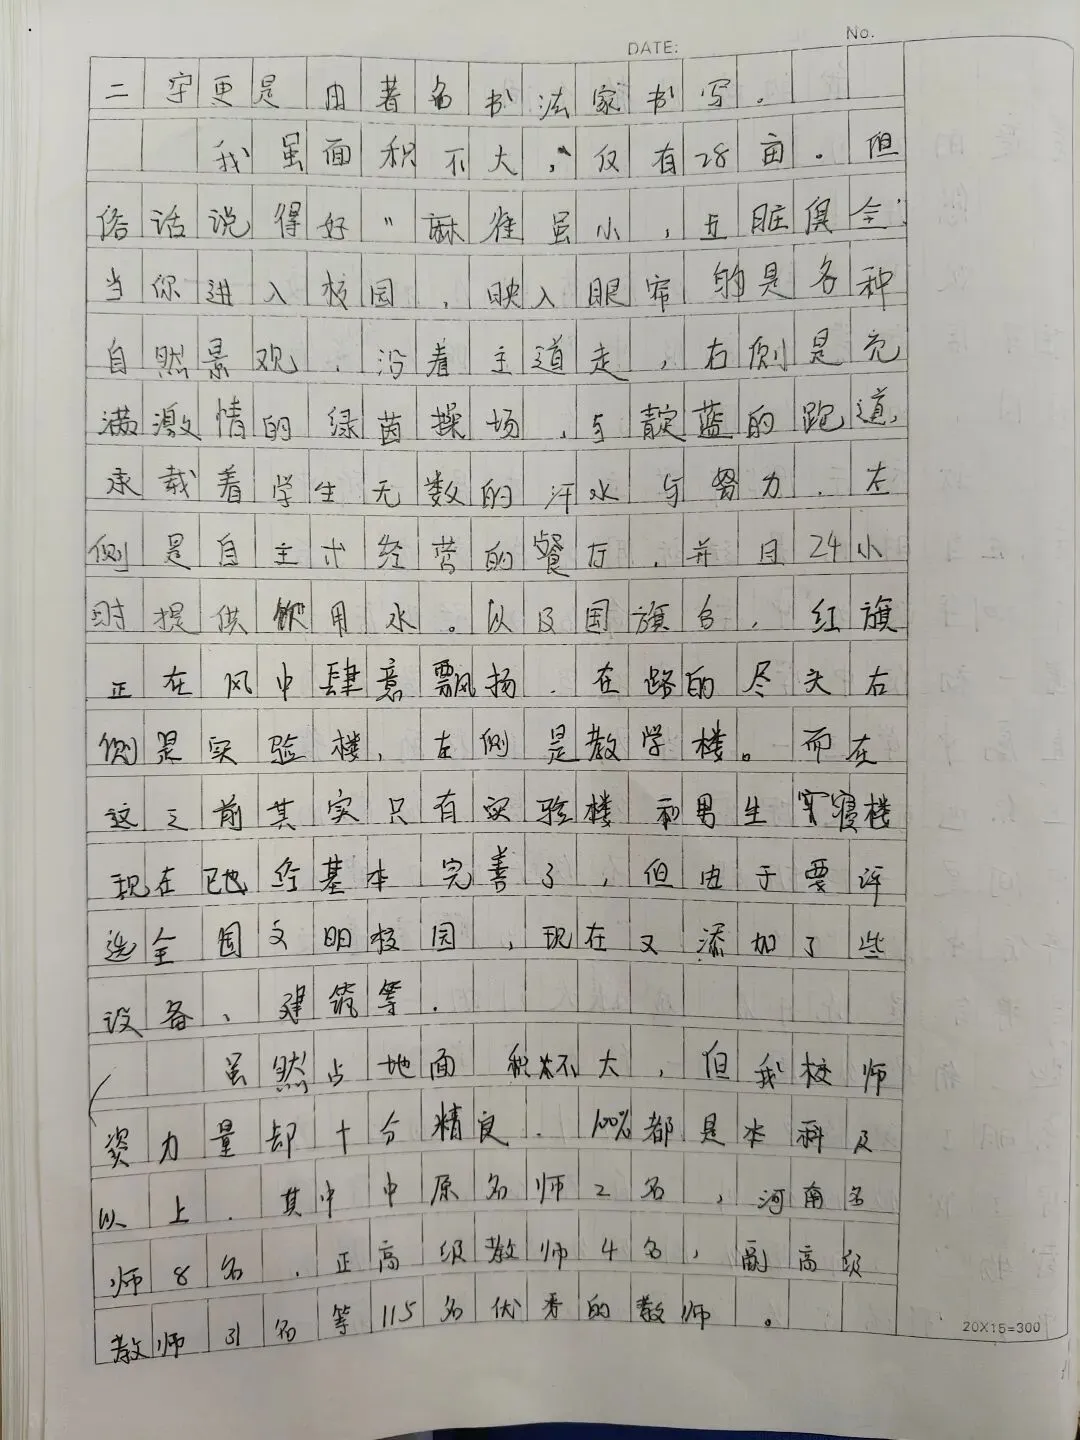 DATE: No.
二字更是由著名书法家书写。
我虽面积不大,仅有28亩。但
俗话说得好"麻雀虽小,五脏俱全"
当你进入校园,映入眼帘的是各种
自然景观.沿着主道走,右侧是充
满激情的绿茵操场,与靛蓝的跑道,
承载着学生无数的汗水与努力.左
侧是自主式经营的餐厅.并且24小
时提供饮用水。以及国旗台,红旗
正在风中肆意飘扬.在路的尽头右
侧是实验楼,左侧是教学楼。而在
这之前其实只有实验楼和男生寝楼
现在已经基本完善了,但由于要评
选全国文明校园,现在又添加了些
设备、建筑等.
虽然占地面积不大,但我校师
资力量却十分精良.100%都是本科及
以上.其中中原名师2名,河南名
师8名.正高级教师4名,副高级
教师31名等115名优秀的教师。
20X15=300